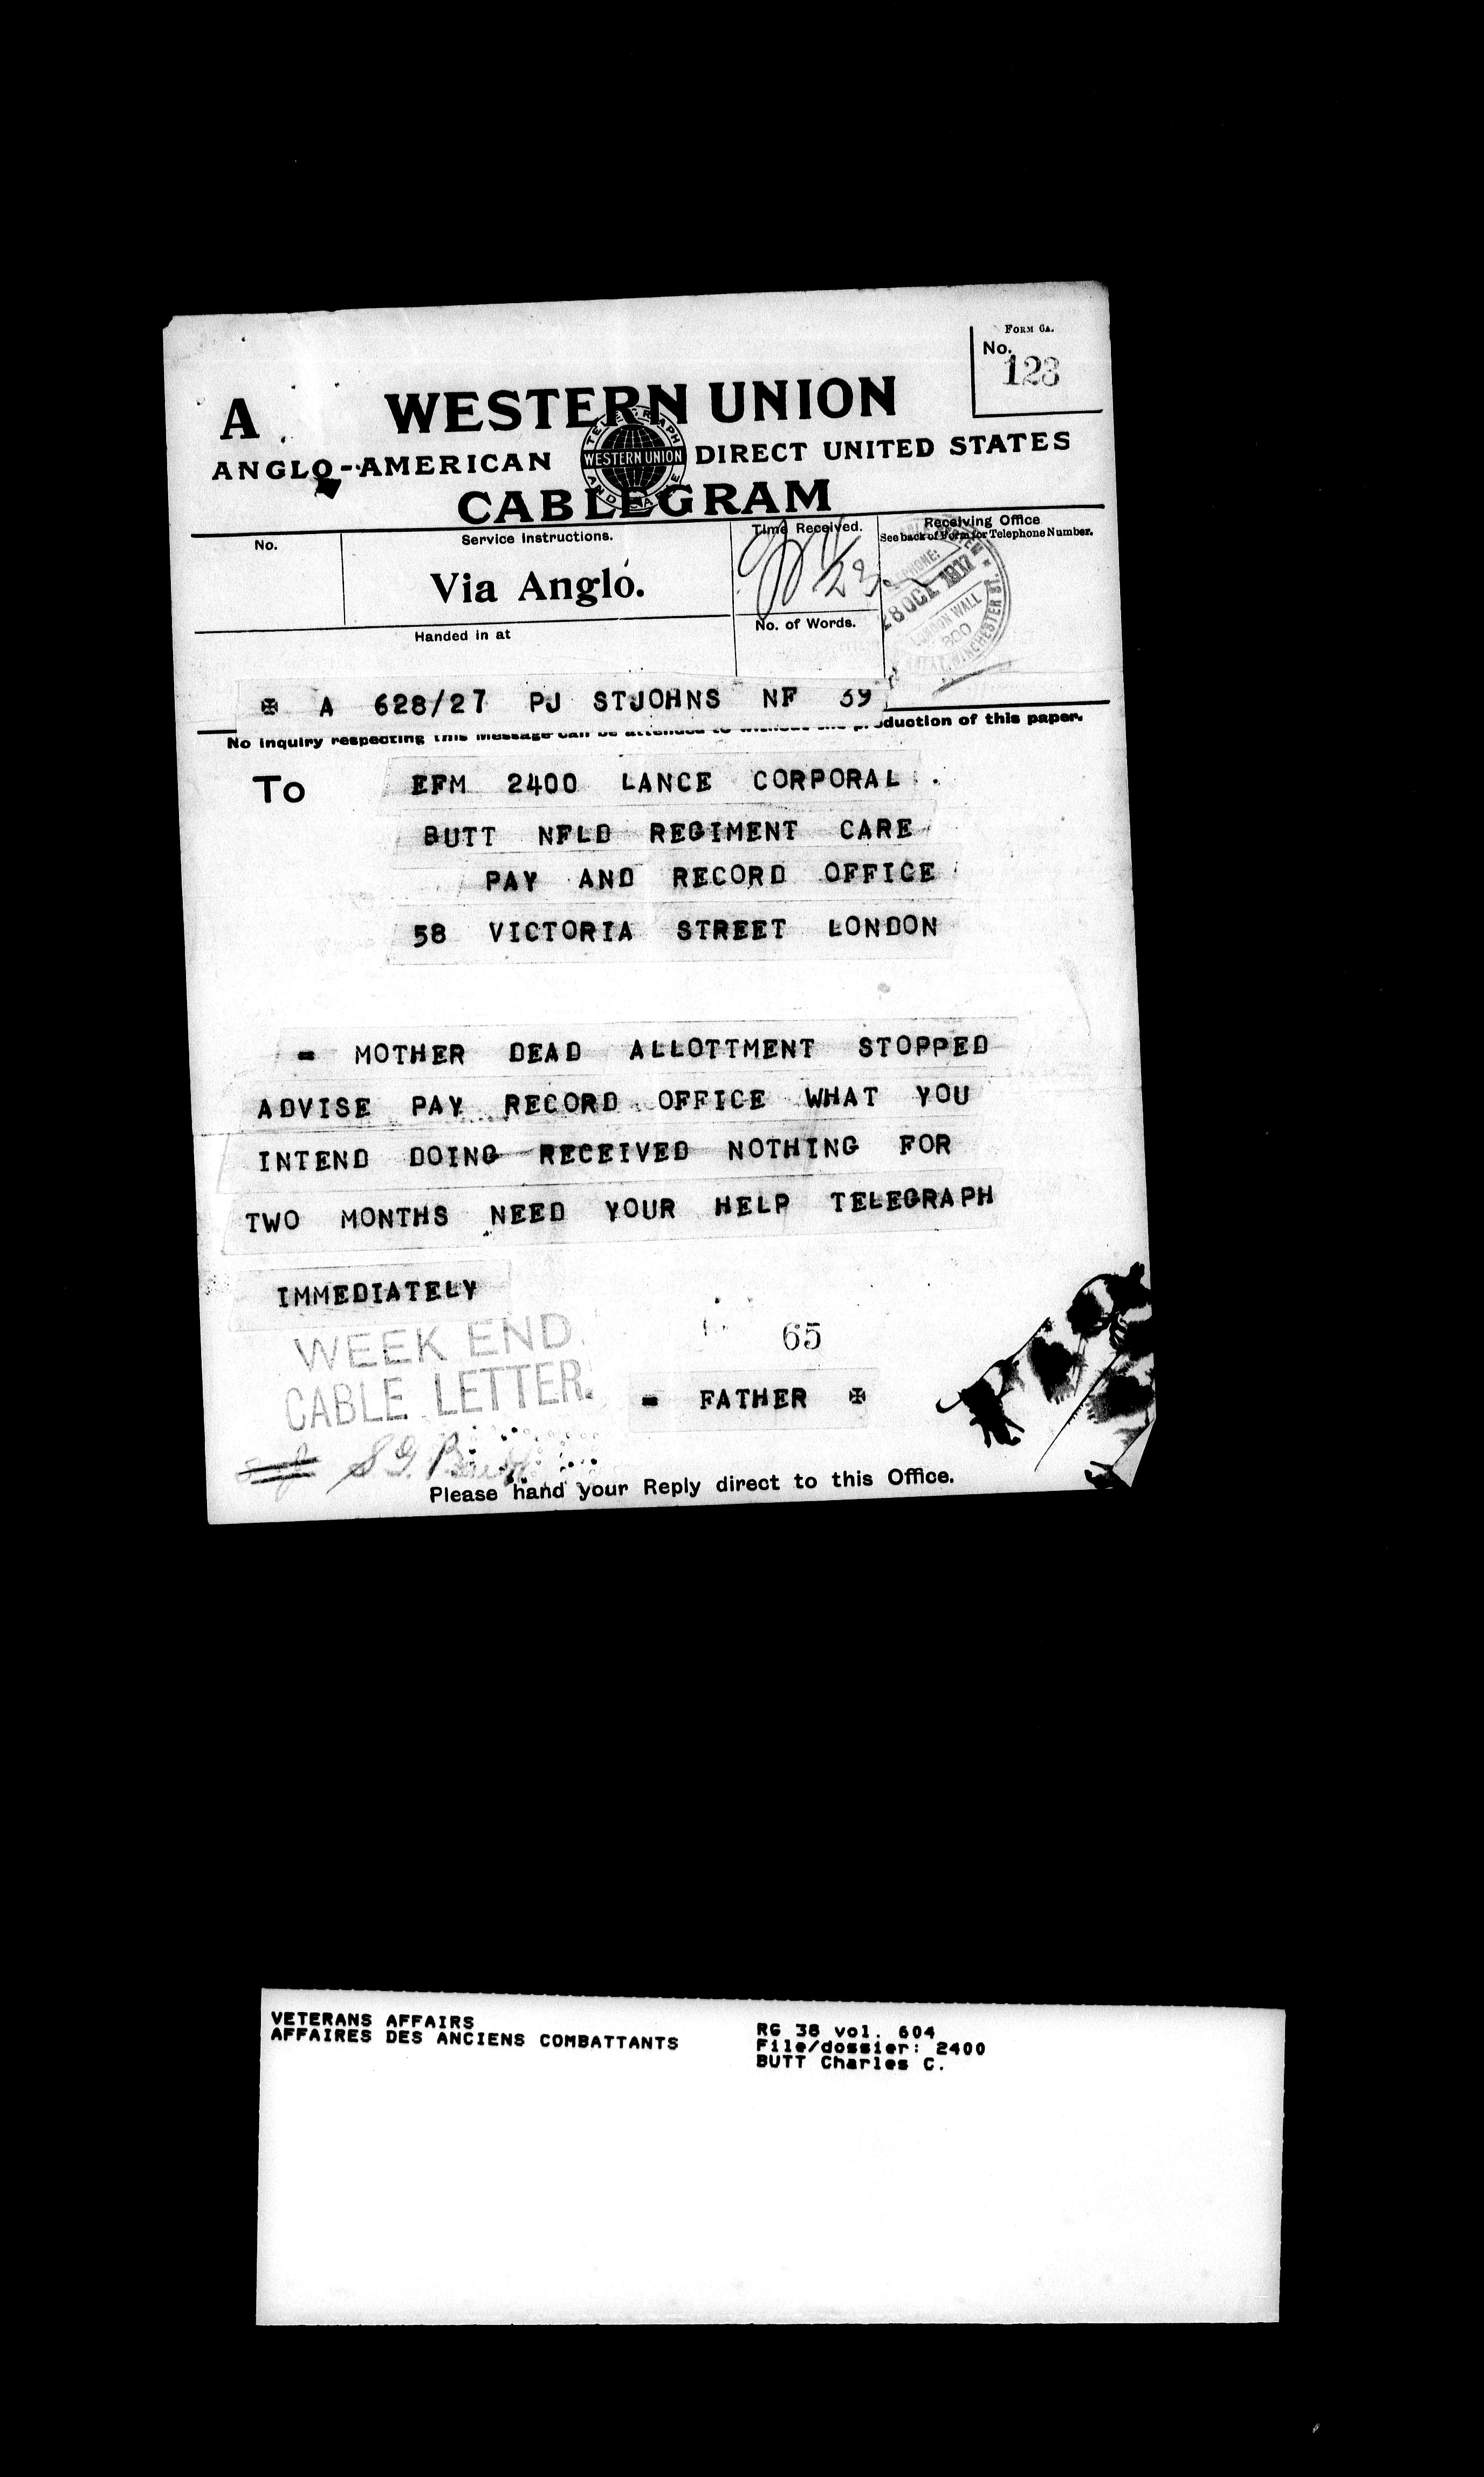 FORM 6A.
No.
123
A WESTERN UNION
TELEGRAPH AND CABLE
WESTERN UNION
ANGLO-AMERICAN DIRECT UNITED STATES
CABLEGRAM
No.
Service Instructions.
Time Received.
Receiving Office
See back of Form for Telephone Number.
Via Anglo.
28 OCT 1917
LONDON WALL
800
WINCHESTER ST.
Handed in at
No. of Words.
✠ A 628/27 PJ STJOHNS NF 39
No inquiry respecting this message can be attended to without the production of this paper.
To
EFM 2400 LANCE CORPORAL
BUTT NFLD REGIMENT CARE
PAY AND RECORD OFFICE
58 VICTORIA STREET LONDON
= MOTHER DEAD ALLOTTMENT STOPPED
ADVISE PAY RECORD OFFICE WHAT YOU
INTEND DOING RECEIVED NOTHING FOR
TWO MONTHS NEED YOUR HELP TELEGRAPH
IMMEDIATELY
WEEK END
CABLE LETTER.
65
= FATHER ✠
Please hand your Reply direct to this Office.
VETERANS AFFAIRS
AFFAIRES DES ANCIENS COMBATTANTS
RG 38 vol. 604
File/dossier: 2400
BUTT Charles C.